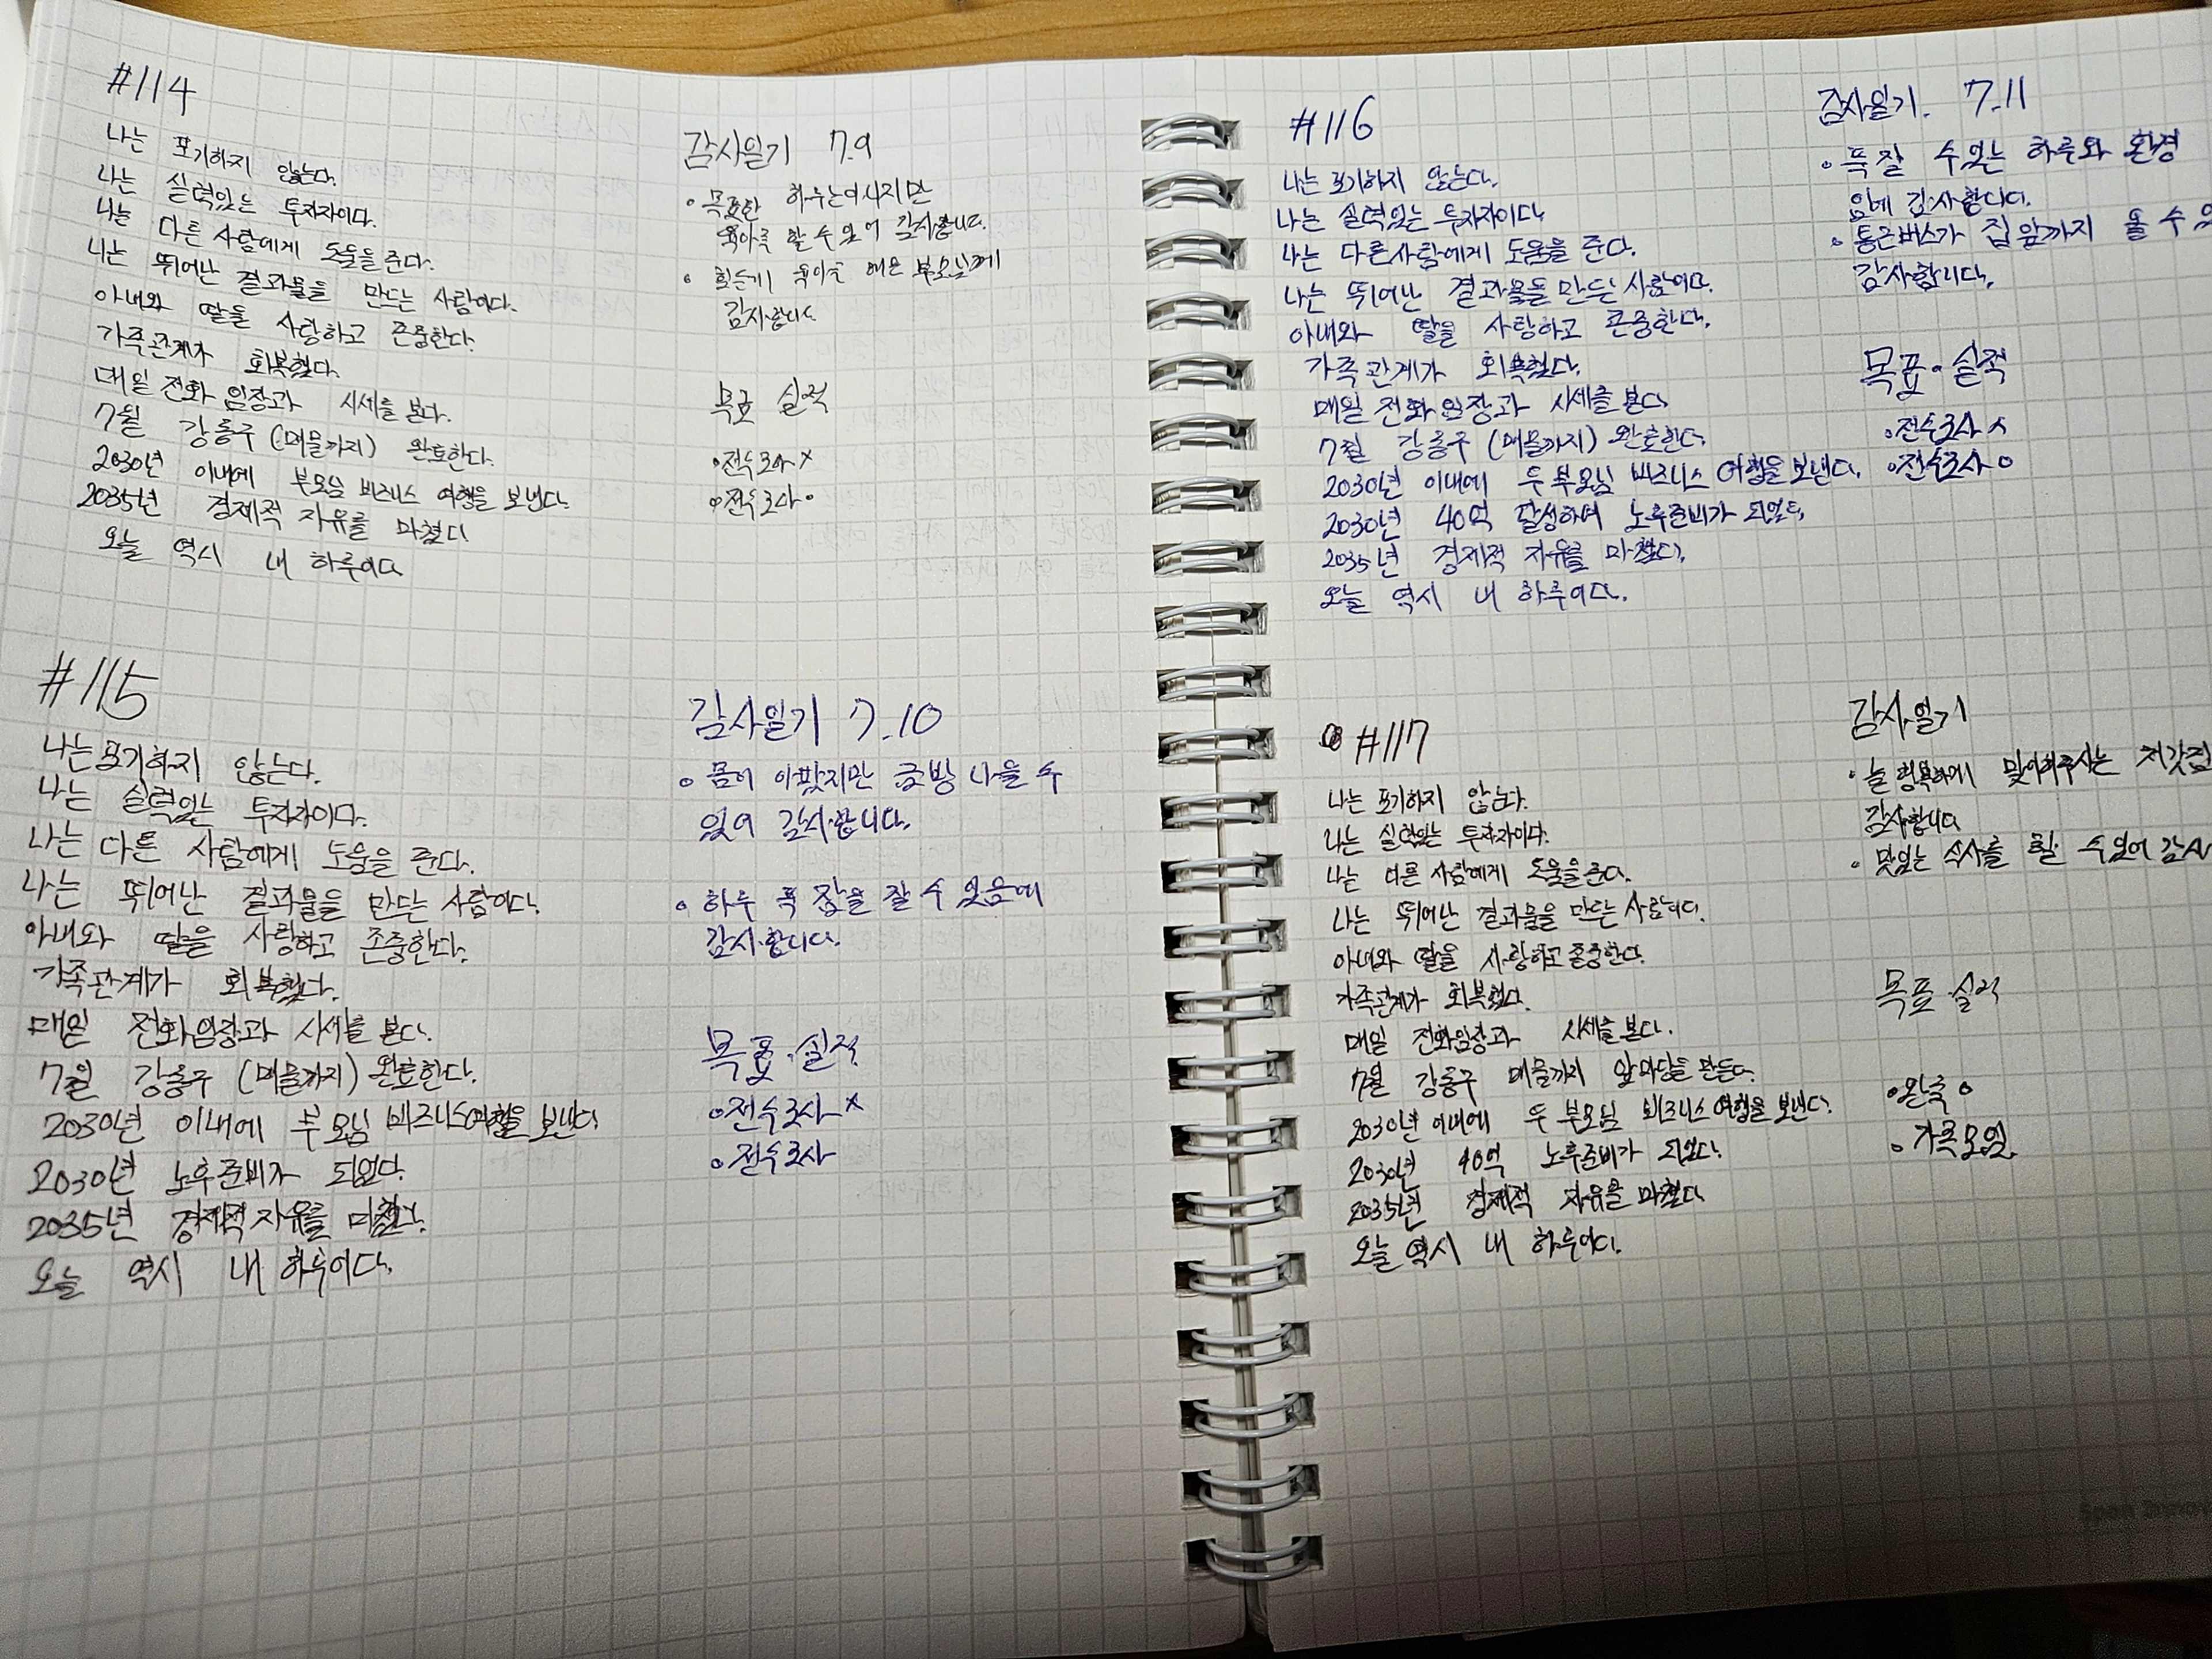 #114
나는 포기하지 않는다.
나는 실력있는 투자자이다.
나는 다른 사람에게 도움을 준다.
나는 뛰어난 결과물을 만드는 사람이다.
아내와 딸을 사랑하고 존중한다.
가족관계가 회복했다.
매일 전화임장과 시세를 본다.
7월 강동구(매물까지) 완료한다.
2030년 이내에 부모님 비즈니스 여행을 보낸다.
2035년 경제적 자유를 마쳤다
오늘 역시 내 하루이다
감사일기 7.9
• 목표한 하루는아니지만
육아를 할 수 있어 감사합니다.
• 힘든게 육아를 부모님께
감사합니다.
목표 실적
•전수조사 x
•전수조사 •
#115
나는포기하지 않는다.
나는 실력있는 투자자이다.
나는 다른 사람에게 도움을 준다.
나는 뛰어난 결과물을 만드는 사람이다.
아내와 딸을 사랑하고 존중한다.
가족관계가 회복했다.
매일 전화임장과 시세를 본다.
7월 강동구 (매물까지) 완료한다.
2030년 이내에 부모님 비즈니스여행을 보낸다
2030년 노후준비가 되었다.
2035년 경제적 자유를 마쳤다.
오늘 역시 내 하루이다.
감사일기 7.10
• 몸이 아팠지만 금방 나을 수
있어 감사합니다.
• 하루 푹 잠을 잘 수 있음에
감사합니다.
목표.실적
•전수조사 x
•전수조사
#116
나는 포기하지 않는다.
나는 실력있는 투자자이다
나는 다른사람에게 도움을 준다.
나는 뛰어난 결과물을 만드는 사람이다.
아내와 딸을 사랑하고 존중한다.
가족관계가 회복했다.
매일 전화임장과 시세를 본다
7월 강동구 (매물까지) 완료한다.
2030년 이내에 두 부모님 비즈니스 여행을 보낸다.
2030년 40억 달성하며 노후준비가 되었다.
2035년 경제적 자유를 마쳤다.
오늘 역시 내 하루이다.
감사일기. 7.11
• 푹 잘 수 있는 하루와 환경
임에 감사합니다.
• 통근버스가 집 앞까지 올 수
감사합니다.
목표.실적
•전수조사 x
•전수조사 o
#117
나는 포기하지 않는다.
나는 실력있는 투자자이다.
나는 다른 사람에게 도움을 준다.
나는 뛰어난 결과물을 만드는 사람이다.
아내와 딸을 사랑하고 존중한다.
가족관계가 회복했다.
매일 전화임장과 시세를 본다.
7월 강동구 매물까지 앞마당을 만든다.
2030년 이내에 두 부모님 비즈니스 여행을 보낸다.
2030년 40억 노후준비가 되었다.
2035년 경제적 자유를 마쳤다
오늘 역시 내 하루이다.
감사일기
• 늘 행복하게 맞이해주시는
감사합니다
• 맛있는 식사를 할 수있어
목표.실적
•완독 o
•가족모임.